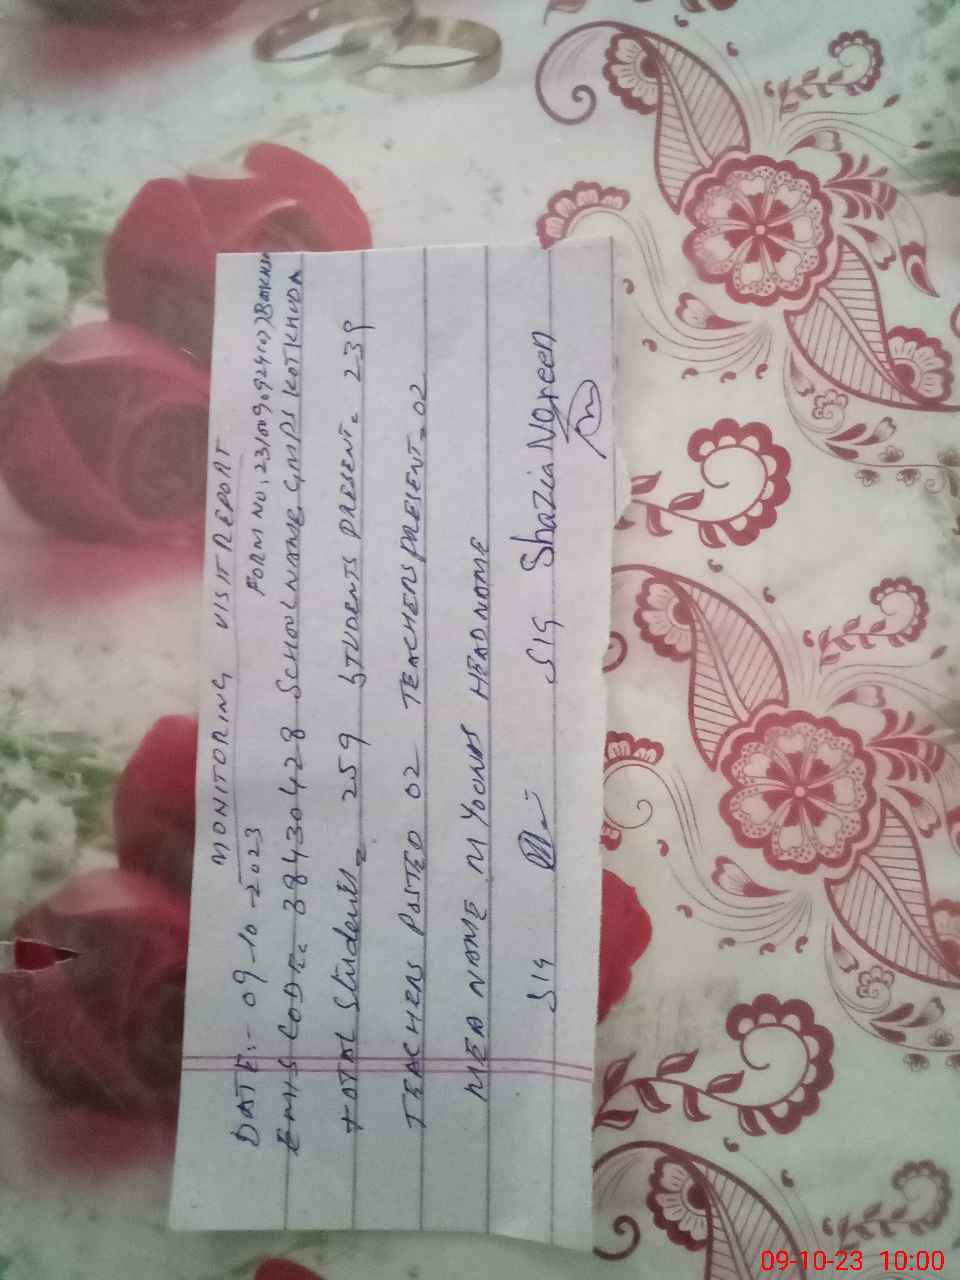 MONITORING VISIT REPORT
DATE:- 09-10-2023 FORM NO.
EMIS CODE. 38430428 SCHOOL NAME GMPS KOT KHUDA
TOTAL Students 259 STUDENTS PRESENT. 239
TEACHERS POSTED 02 TEACHERS PRESENT 02
MEA NAME M YOUNAS HEAD NAME
SIG SIG Shazia Nareen
09-10-23 10:00